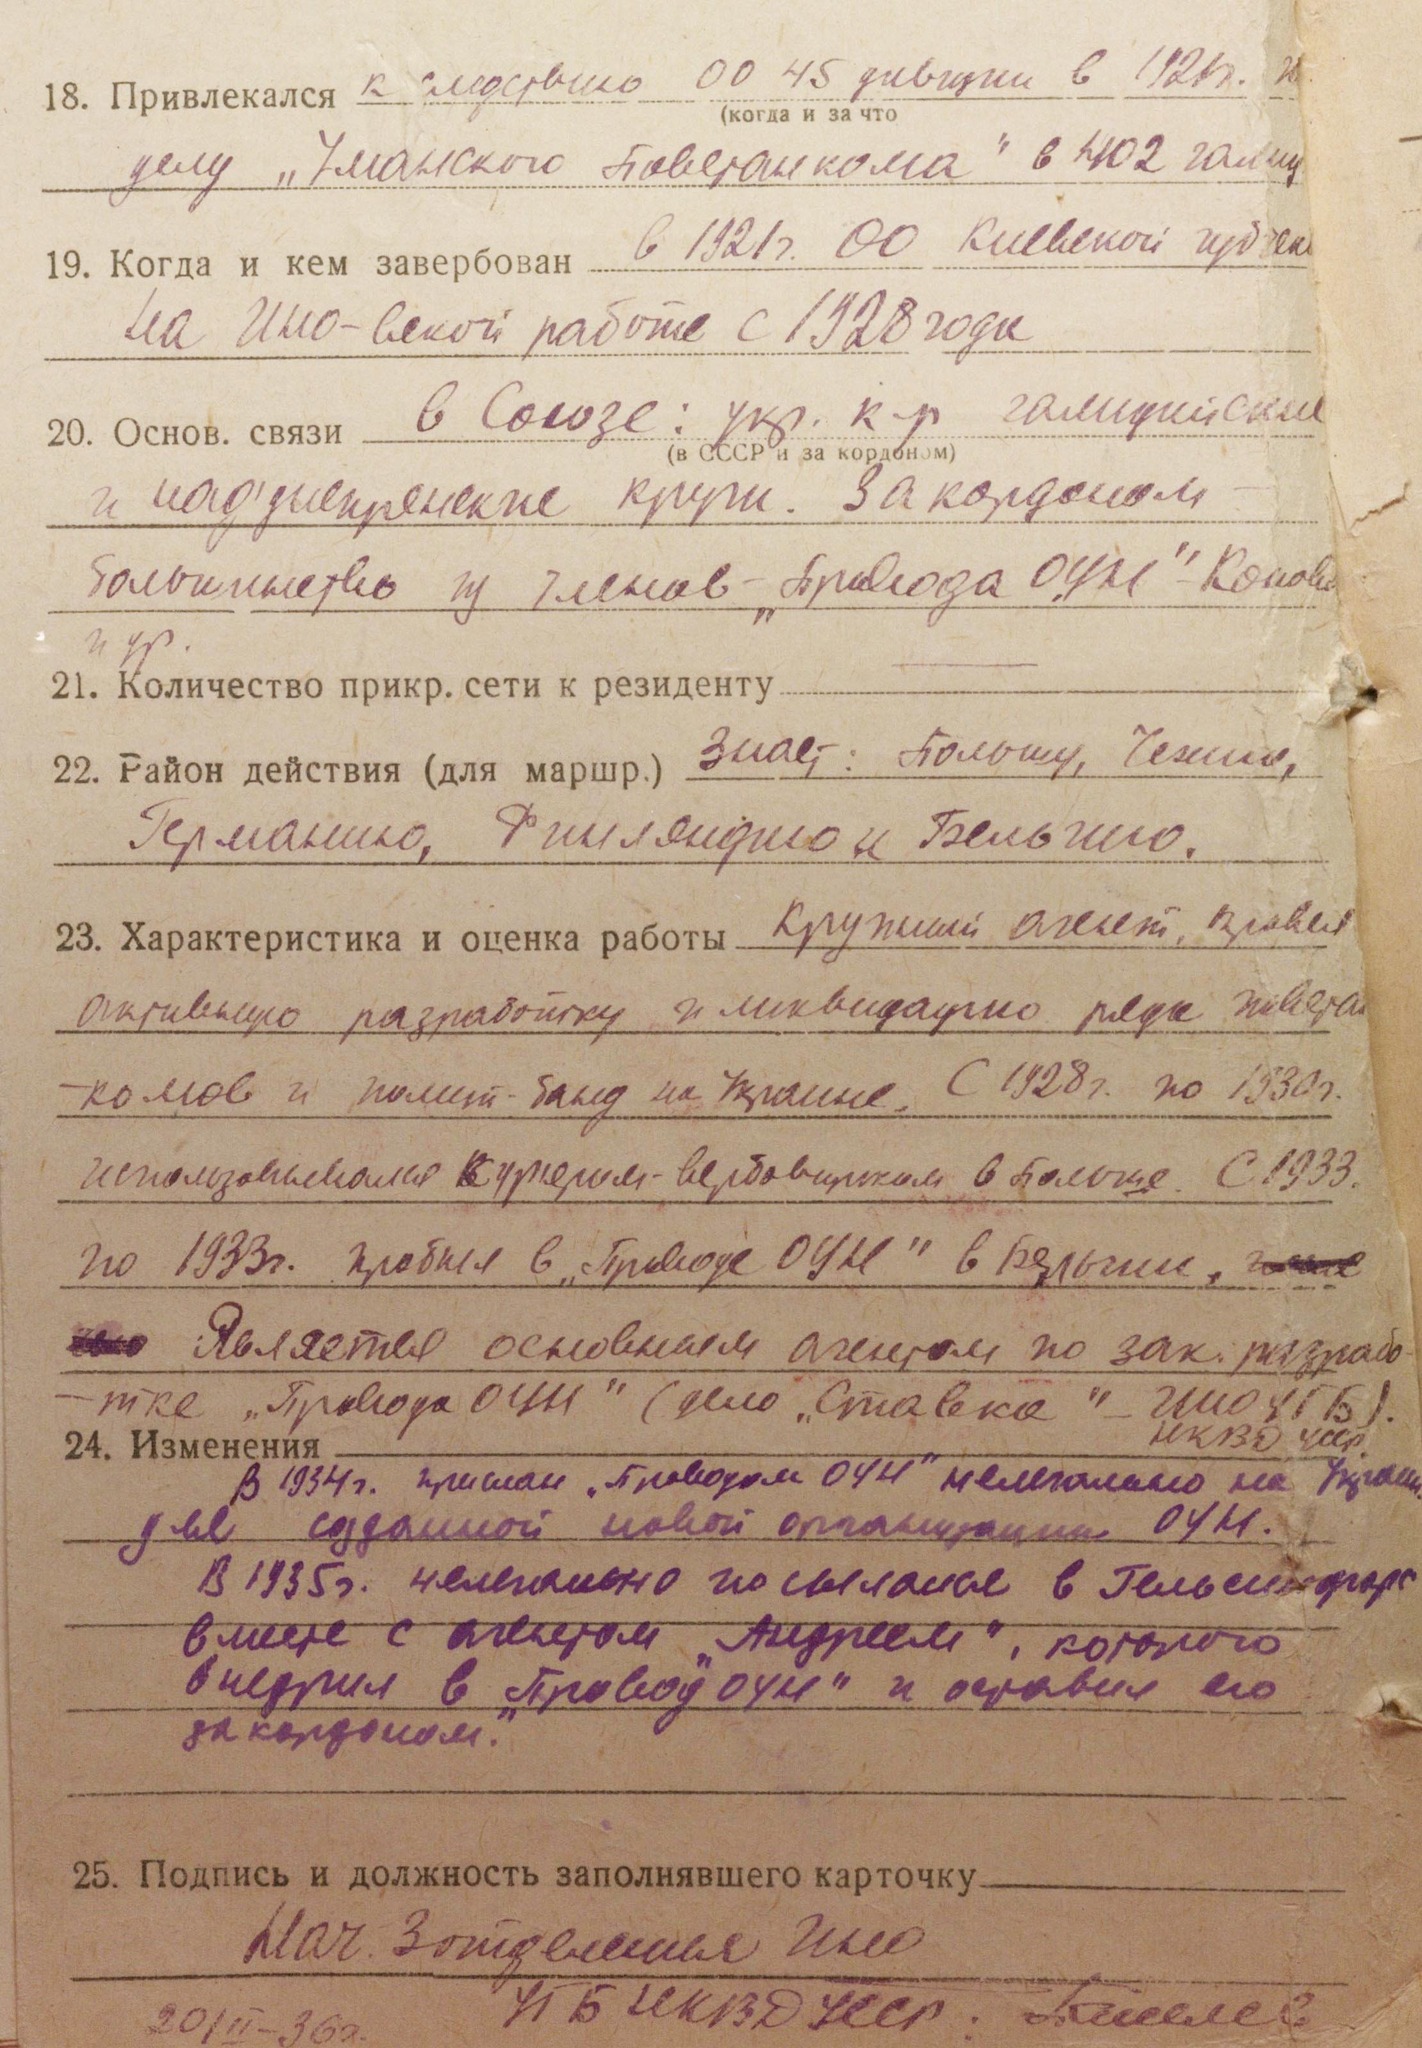 18. Привлекался к следствию ОО 45 дивизии в 1921г. п
(когда и за что
делу „Уманского Повстанкома" в 402 галиц
19. Когда и кем завербован в 1921г. ОО Киевской губчека
на Ино-вской работе с 1928 года
20. Основ. связи в Союзе: укр. к-р галицийские
(в СССР и за кордоном)
и над'днепрянские круги. За кордоном –
большинство из членов – „Провода ОУН" – Конов
и др.
21. Количество прикр. сети к резиденту
22. Район действия (для маршр.) Знает: Польшу, Чехию,
Германию, Финляндию и Бельгию.
23. Характеристика и оценка работы Крупный агент, провел
активную разработку и ликвидацию ряда повстан
-комов и полит-банд на Украине. С 1928г. по 1930г.
использовывался курьером-вербовщиком в Польше. С 1933.
по 1933г. пробыл в „Проводе ОУН" в Бельгии,
Является основным агентом по зак. разрабо-
-тке „Провода ОУН" (дело „Ставка" – ИНО УГБ).
НКВД УССР.
24. Изменения
В 1934г. прислан „Проводом ОУН" нелегально на Украин.
для созданной новой организации ОУН.
В 1935г. нелегально посылался в Гельсингфорс
вместе с агентом „Андреем", которого
внедрил в „Провод ОУН" и оставил его
за кордоном."
25. Подпись и должность заполнявшего карточку
Нач. 3 отделения Ино
УГБ НКВД УССР:
20/II-36г.